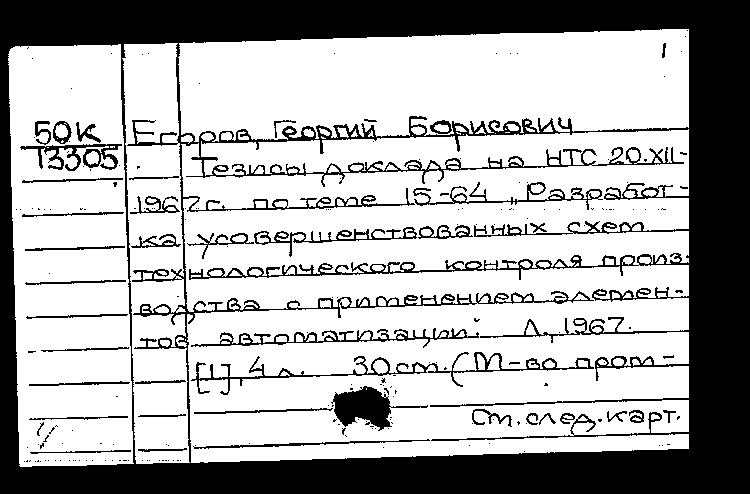 1
50К Егоров, Георгий Борисович
13305 Тезисы доклада на НТС 20.XII-
1967г. по теме 15-64 „Разработ-
ка усовершенствованных схем
технологического контроля произ-
водства с применением элемен-
тов автоматизации". Л., 1967.
[1], 4 л. 30 см. (М-во пром-
см. след. карт.